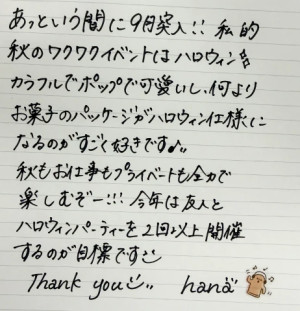 あっという間に9月突入!! 私的
秋のワクワクイベントはハロウィン
カラフルでポップで可愛いし、何より
お菓子のパッケージがハロウィン仕様に
なるのがすごく好きです♪"
秋もお仕事もプライベートも全力で
楽しむぞー!!! 今年は友人と
ハロウィンパーティーを2回以上開催
するのが目標です
Thank you hana